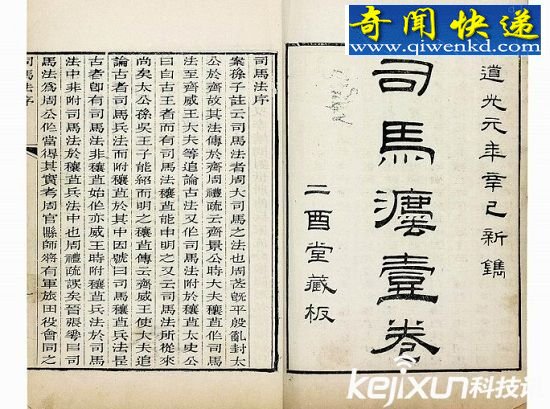 奇闻快递
www.qiwenkd.com
道光元年辛巳新鐫
司馬灋壹卷
二酉堂藏板
司馬法序
案孫子註云司馬法者周大司馬之法也周武旣平殷亂封太
公於齊故其法傳於齊周禮疏云齊景公時大夫穰苴作司馬
法至齊威王大夫等追論古法又作司馬法附於穰苴太史公
曰自古王者而有司馬法穰苴能申明之又云司馬法所從來
尚矣太公孫吳王子能紹而明之穰苴傳云齊威王使大夫追
論古者司馬兵法而附穰苴於其中因號曰司馬穰苴兵法是
古者卽有司馬法非穰苴始作亦威王時附穰苴兵法於司馬
法中非附司馬法於穰苴兵法中也周禮疏誤矣晉張華曰司
馬法爲周公作當得其實考周官縣師將有軍旅田役會同之
司馬法序
kejixun科技讯